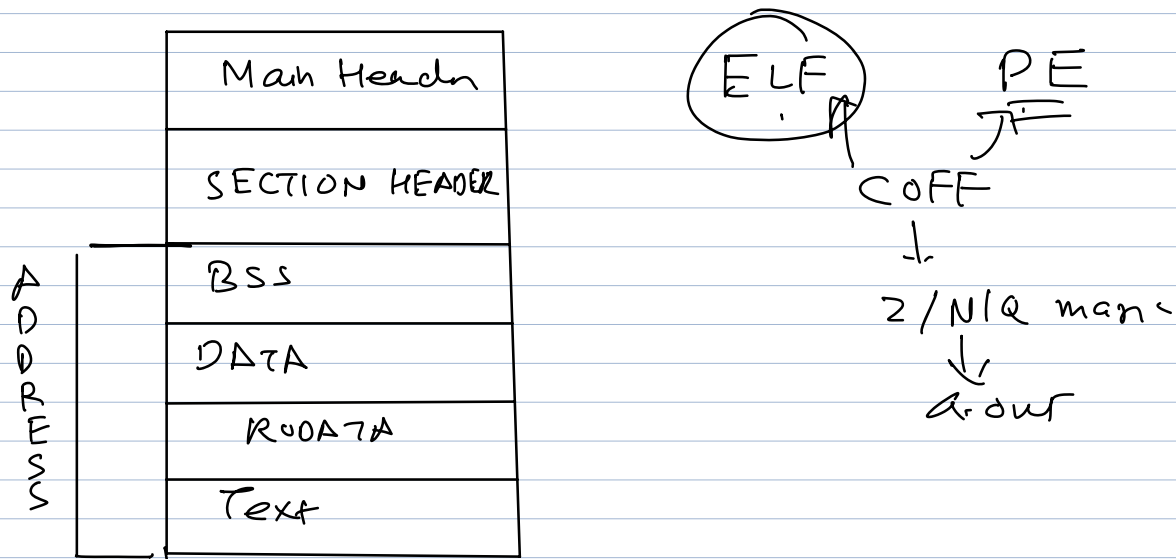 Main Header
SECTION HEADER
BSS
DATA
RODATA
Text
ADDRESS
ELF
PE
COFF
Z/N/Q
a.out